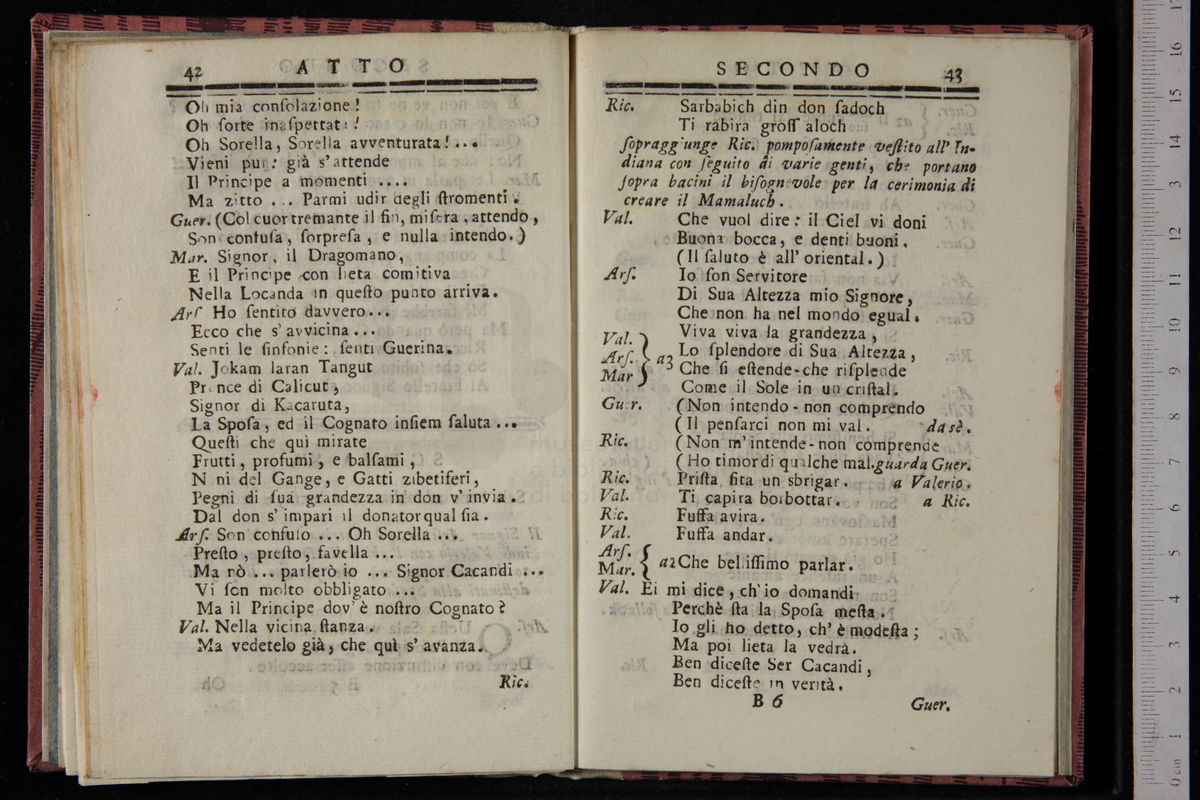 42 ATTO
Oh mia conſolazione!
Oh ſorte inaſpettata!
Oh Sorella, Sorella avventurata!...
Vieni pur: già s'attende
Il Principe a momenti ....
Ma zitto ... Parmi udir degli ſtromenti.
Guer. (Col cuor tremante il fin, miſera, attendo,
Son confuſa, ſorpreſa, e nulla intendo.)
Mar. Signor, il Dragomano,
E il Principe con lieta comitiva
Nella Locanda in queſto punto arriva.
Arſ Ho ſentito davvero...
Ecco che s'avvicina...
Senti le ſinfonie: ſenti Guerina.
Val. Jokam laran Tangut
Prence di Calicut,
Signor di Kacaruta,
La Spoſa, ed il Cognato inſiem ſaluta ...
Queſti che quì mirate
Frutti, profumi, e balſami,
N ni del Gange, e Gatti zibetiferi,
Pegni di ſua grandezza in don v'invia.
Dal don s'impari il donator qual ſia.
Arſ. Son confuſo ... Oh Sorella ...
Preſto, preſto, favella ...
Ma nò ... parlerò io ... Signor Cacandi ...
Vi ſon molto obbligato ...
Ma il Principe dov'è noſtro Cognato?
Val. Nella vicina ſtanza.
Ma vedetelo già, che quì s'avanza.
Ric.
SECONDO 43
Ric. Sarbabich din don ſadoch
Ti rabira groſſ aloch
ſopraggiunge Ric. pompoſamente veſtito all'In-
diana con ſeguito di varie genti, che portano
ſopra bacini il biſognevole per la cerimonia di
creare il Mamaluch.
Val. Che vuol dire: il Ciel vi doni
Buona bocca, e denti buoni,
(Il ſaluto è all'oriental.)
Arſ. Io ſon Servitore
Di Sua Altezza mio Signore,
Che non ha nel mondo egual.
Val. Viva viva la grandezza,
Arſ. a3 Lo ſplendore di Sua Altezza,
Mar Che ſi eſtende-che riſplende
Come il Sole in un criſtal.
Guer. (Non intendo-non comprendo
(Il penſarci non mi val. da sè.
Ric. (Non m'intende-non comprende
(Ho timor di qualche mal. guarda Guer.
Ric. Priſta fita un sbrigar. a Valerio.
Val. Ti capira borbottar. a Ric.
Ric. Fuſſa avira.
Val. Fuſſa andar.
Arſ.
Mar. a2 Che belliſſimo parlar.
Val. Ei mi dice, ch'io domandi
Perchè ſta la Spoſa meſta.
Io gli ho detto, ch'è modeſta;
Ma poi lieta la vedrà.
Ben diceſte Ser Cacandi,
Ben diceſte in verità.
B 6 Guer.